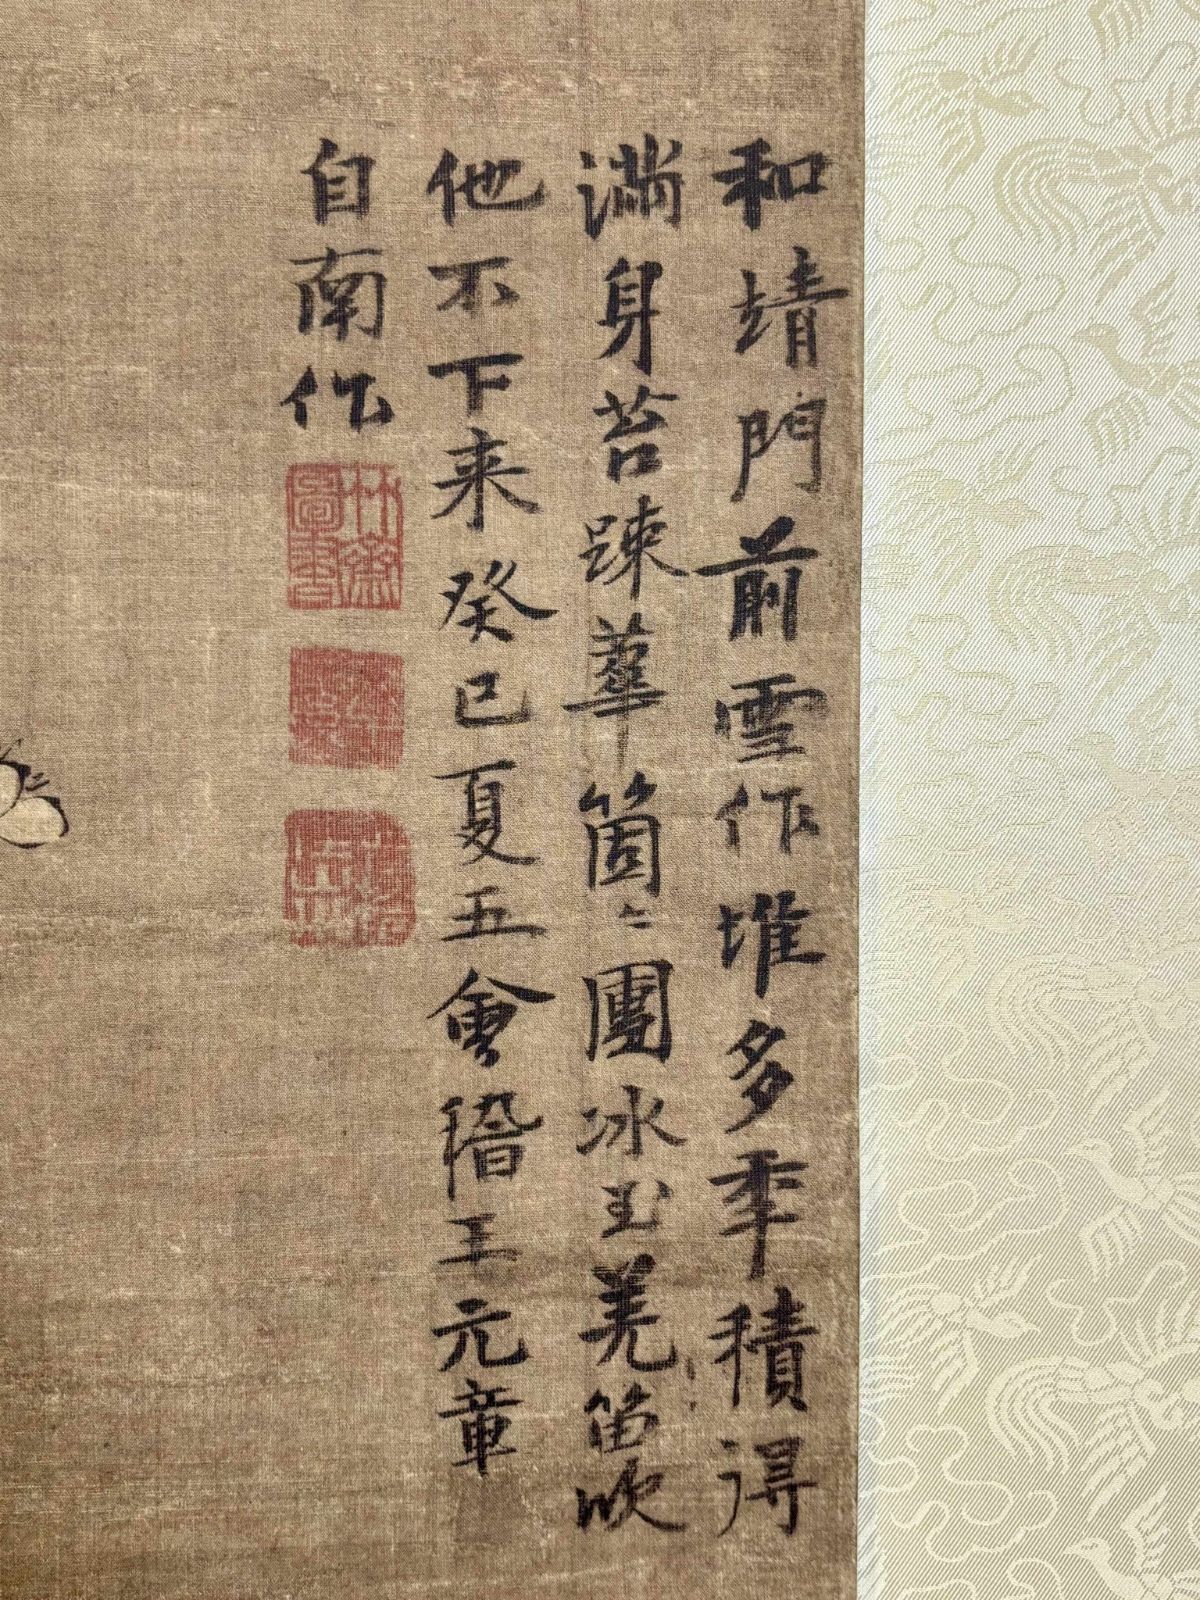 和靖門前雪作堆多年積得
滿身苔疎華箇〻團冰玉羌笛吹
他不下来癸巳夏五會稽王元章
自南作
竹齋圖書